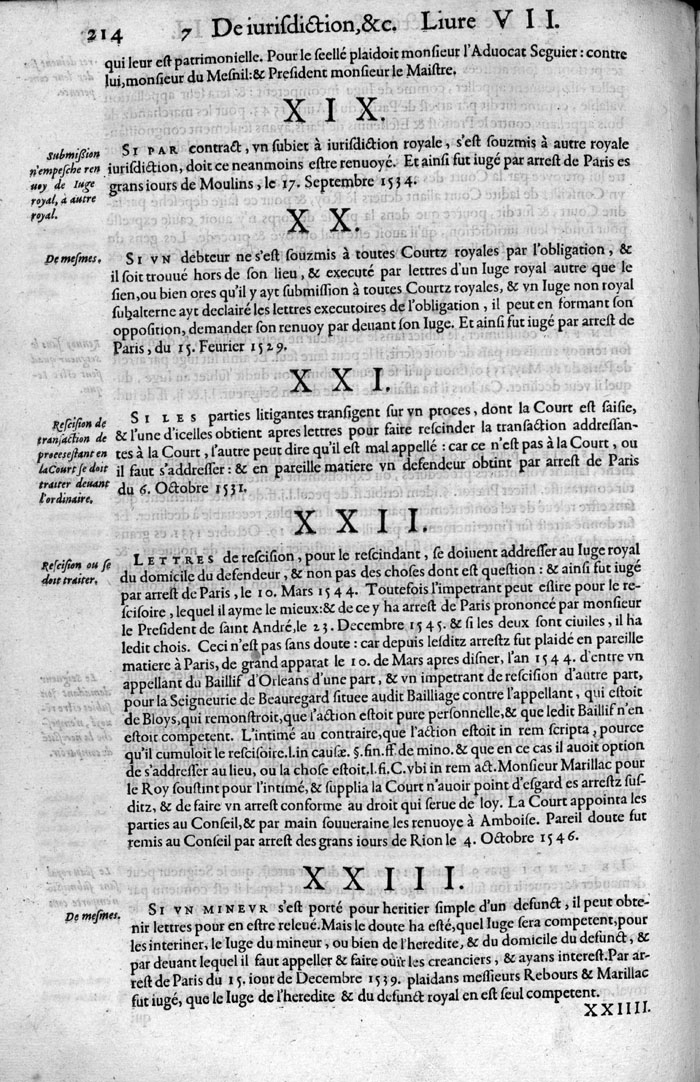 214 7 De iurisdiction, &c. Liure VII.
qui leur est patrimonielle. Pour le seellé plaidoit monsieur l'Aduocat Seguier: contre
lui, monsieur du Mesnil: & President monsieur le Maistre.
XIX.
Submission
n'empesche ren
uoy de Iuge
royal, à autre
royal.
SI PAR contract, vn subiet à iurisdiction royale, s'est souzmis à autre royale
iurisdiction, doit ce neanmoins estre renuoyé. Et ainsi fut iugé par arrest de Paris es
grans iours de Moulins, le 17. Septembre 1534.
XX.
De mesmes.
SI VN debteur ne s'est souzmis à toutes Courtz royales par l'obligation, &
il soit trouué hors de son lieu, & executé par lettres d'un Iuge royal autre que le
sien, ou bien ores qu'il y ayt submission à toutes Courtz royales, & vn Iuge non royal
subalterne ayt declairé les lettres executoires de l'obligation, il peut en formant son
opposition, demander son renuoy par deuant son Iuge. Et ainsi fut iugé par arrest de
Paris, du 15. Feurier 1529.
XXI.
Rescision de
transaction de
proces estant en
la Court se doit
traiter deuant
l'ordinaire.
SI LES parties litigantes transigent sur vn proces, dont la Court est saisie,
& l'une d'icelles obtient apres lettres pour faire rescinder la transaction addressan-
tes à la Court, l'autre peut dire qu'il est mal appellé: car ce n'est pas à la Court, ou
il faut s'addresser: & en pareille matiere vn defendeur obtint par arrest de Paris
du 6. Octobre 1531.
XXII.
Rescision ou se
doit traiter.
LETTRES de rescision, pour le rescindant, se doiuent addresser au Iuge royal
du domicile du defendeur, & non pas des choses dont est question: & ainsi fut iugé
par arrest de Paris, le 10. Mars 1544. Toutefois l'impetrant peut eslire pour le re-
scisoire, lequel il ayme le mieux: & de ce y ha arrest de Paris prononcé par monsieur
le President de saint André, le 23. Decembre 1545. & si les deux sont ciuiles, il ha
ledit chois. Ceci n'est pas sans doute: car depuis lesditz arrestz fut plaidé en pareille
matiere à Paris, de grand apparat le 10. de Mars apres disner, l'an 1544. d'entre vn
appellant du Baillif d'Orleans d'une part, & vn impetrant de rescision d'autre part,
pour la Seigneurie de Beauregard situee audit Bailliage contre l'appellant, qui estoit
de Bloys, qui remonstroit, que l'action estoit pure personnelle, & que ledit Baillif n'en
estoit competent. L'intimé au contraire, que l'action estoit in rem scripta, pource
qu'il cumuloit le rescisoire. l. in causæ. §. fin. ff. de mino. & que en ce cas il auoit option
de s'addresser au lieu, ou la chose estoit. l. fi. C. vbi in rem act. Monsieur Marillac pour
le Roy soustint pour l'intimé, & supplia la Court n'auoir point d'esgard es arrestz sus-
ditz, & de faire vn arrest conforme au droit qui serue de loy. La Court appointa les
parties au Conseil, & par main souueraine les renuoye à Amboise. Pareil doute fut
remis au Conseil par arrest des grans iours de Rion le 4. Octobre 1546.
XXIII.
De mesmes.
SI VN MINEVR s'est porté pour heritier simple d'un defunct, il peut obte-
nir lettres pour en estre releué. Mais le doute ha esté, quel Iuge sera competent, pour
les interiner, le Iuge du mineur, ou bien de l'heredite, & du domicile du defunct, &
par deuant lequel il faut appeller & faire ouïr les creanciers, & ayans interest. Par ar-
rest de Paris du 15. iour de Decembre 1539. plaidans messieurs Rebours & Marillac
fut iugé, que le Iuge de l'heredite & du defunct royal en est seul competent.
XXIIII.